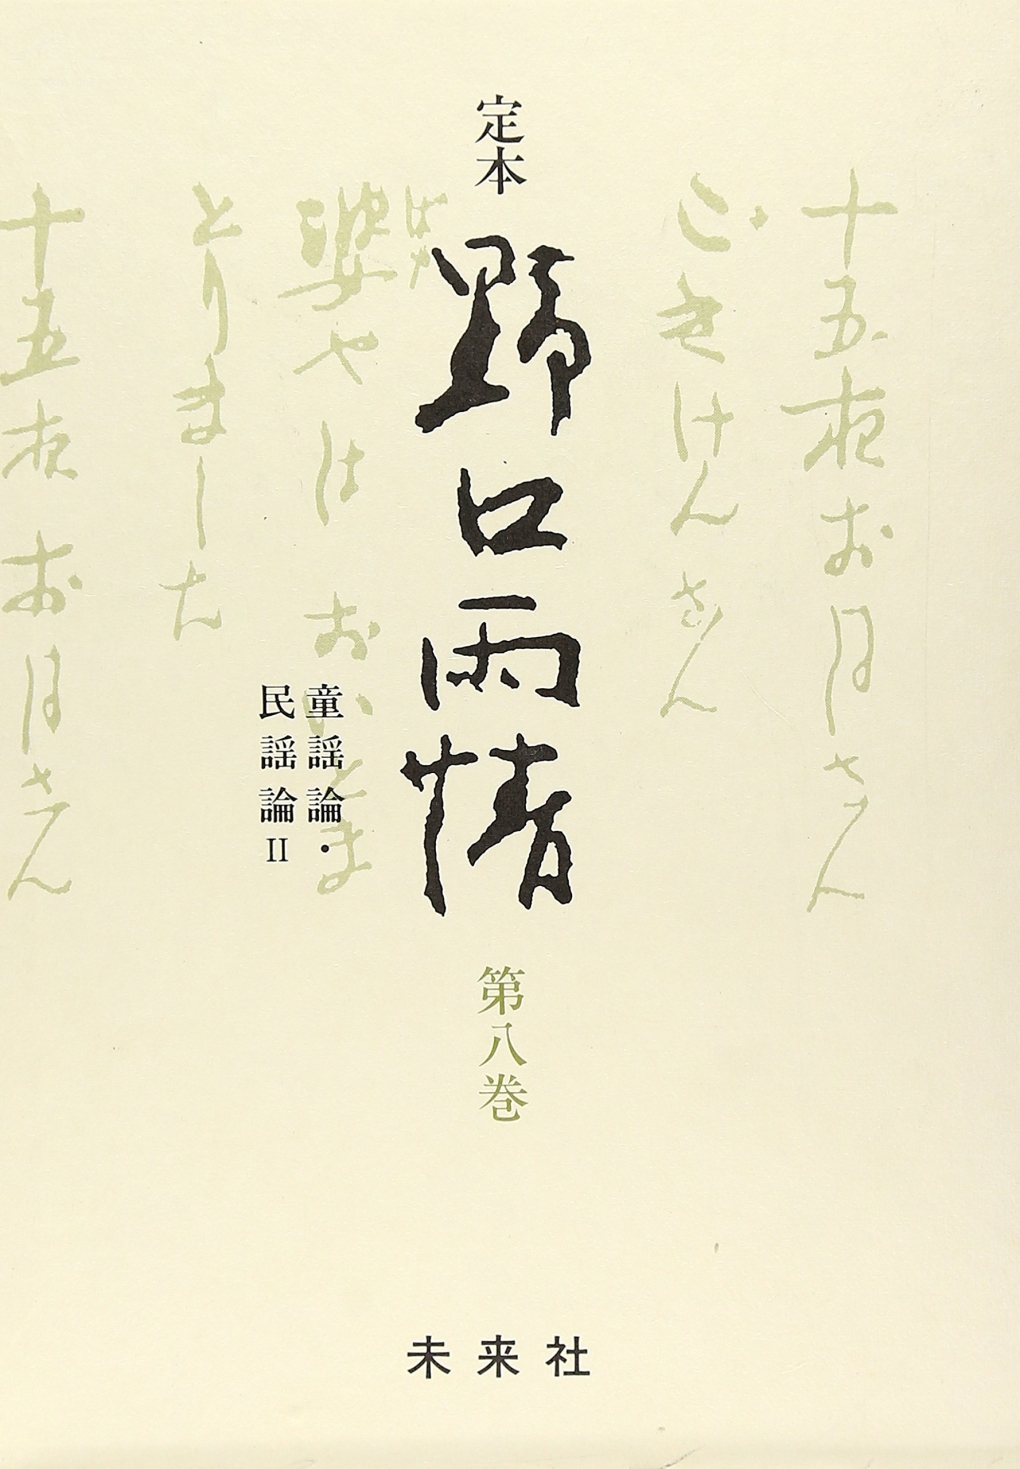 定本
野口雨情
第八巻
童謡論・
民謡論II
十五夜お月さん
ごきげんさん
婆やは おいとま
ばあ
とりました
十五夜お月さん
未来社